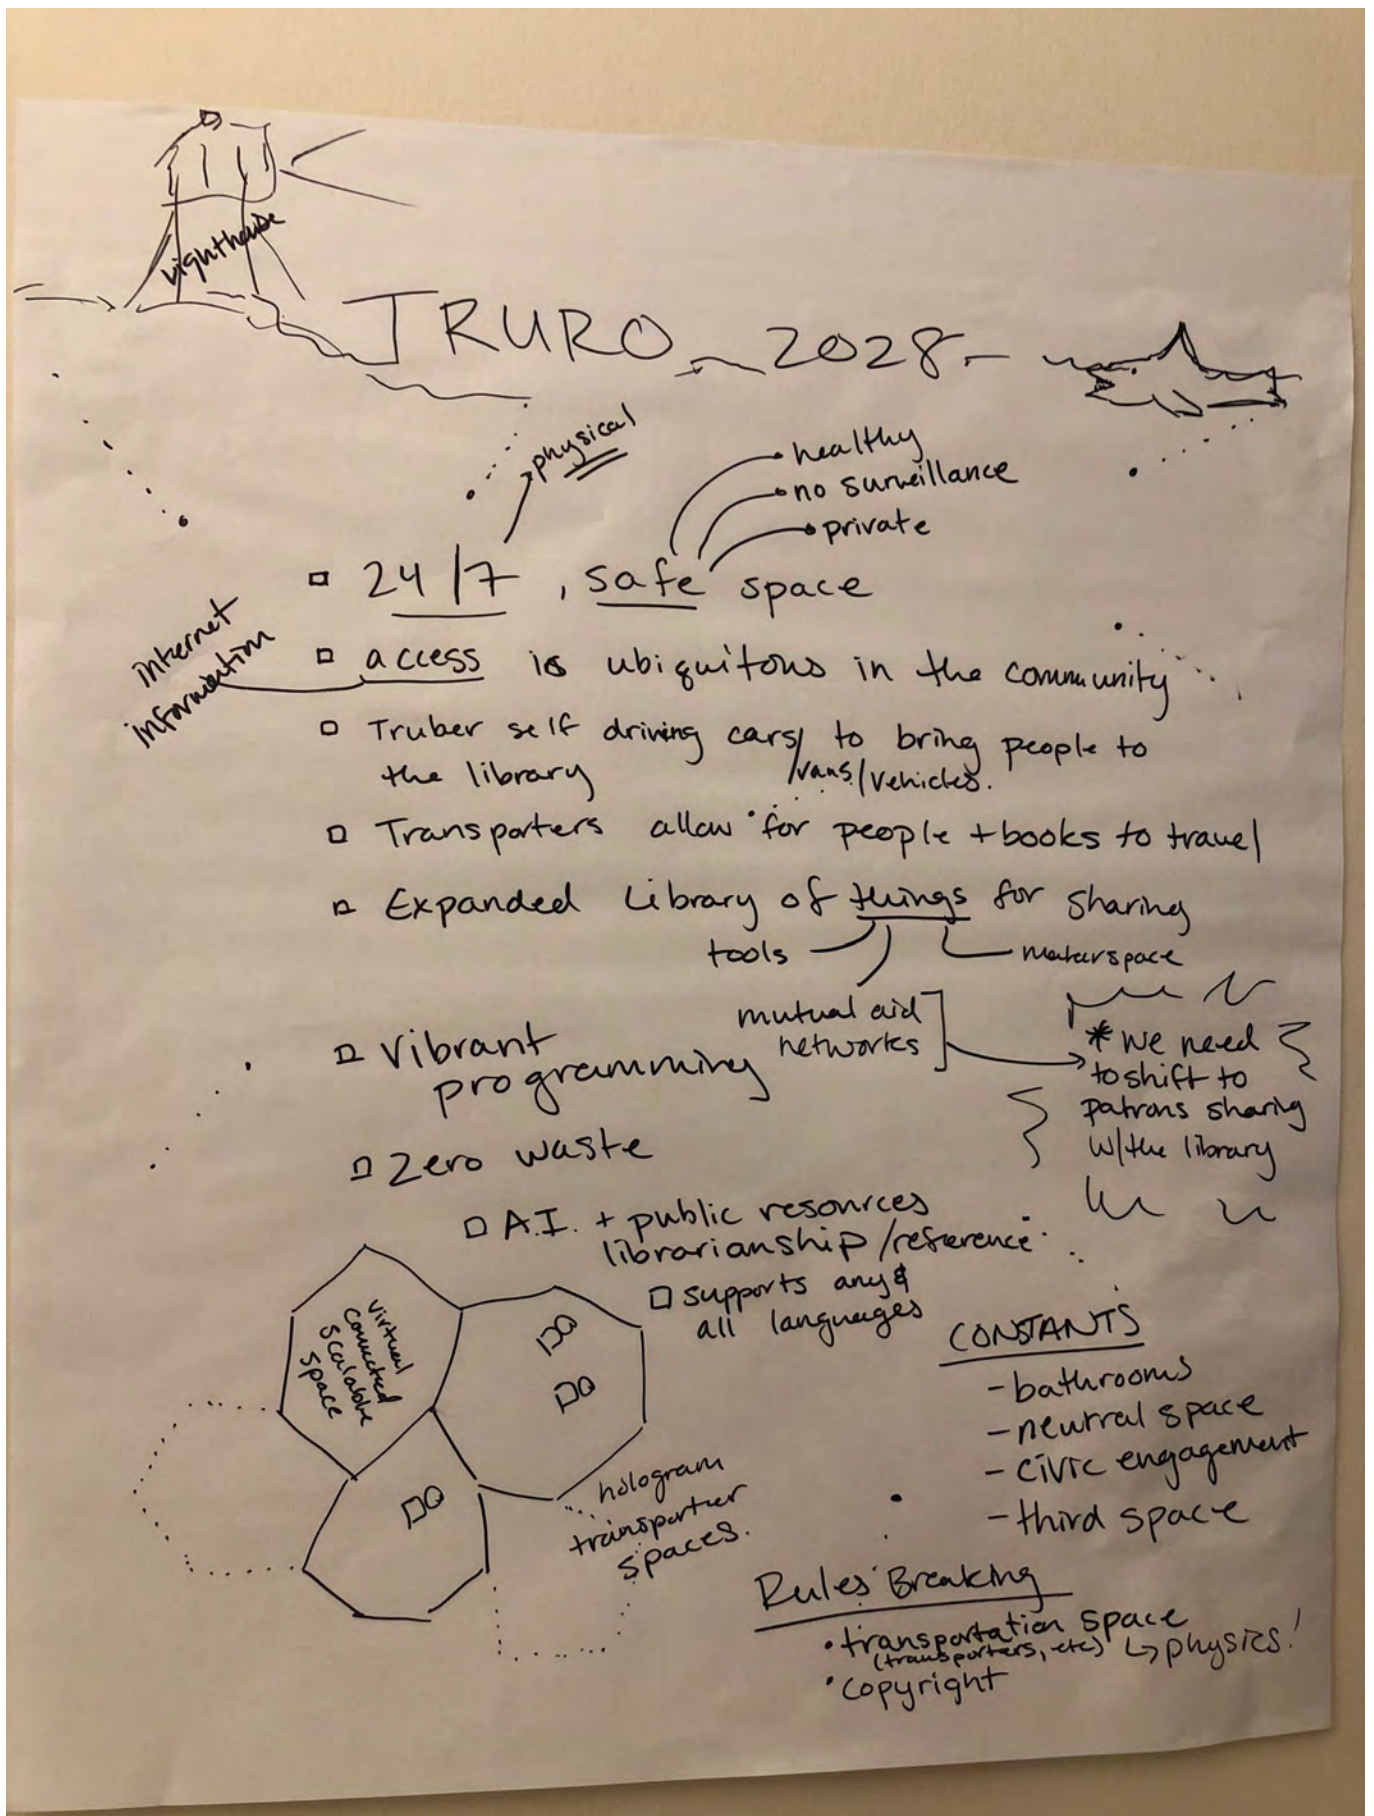 Lighthouse
TRURO 2028
physical
• healthy
• no surveillance
• private
24/7, safe space
internet
information
access is ubiquitous in the community
Truber self driving cars/ to bring people to
the library /vans/vehicles.
Transporters allow for people + books to travel
Expanded Library of things for sharing
tools
makerspace
mutual aid
networks
* we need
to shift to
patrons sharing
w/the library
Vibrant
programming
Zero waste
A.I. + public resources
librarianship/reference
supports any &
all languages
virtual
connected
scalable
space
hologram
transporter
spaces.
CONSTANTS
- bathrooms
- neutral space
- civic engagement
- third space
Rules Breaking
• transportation space
(transporters, etc) ↳ physics!
• copyright